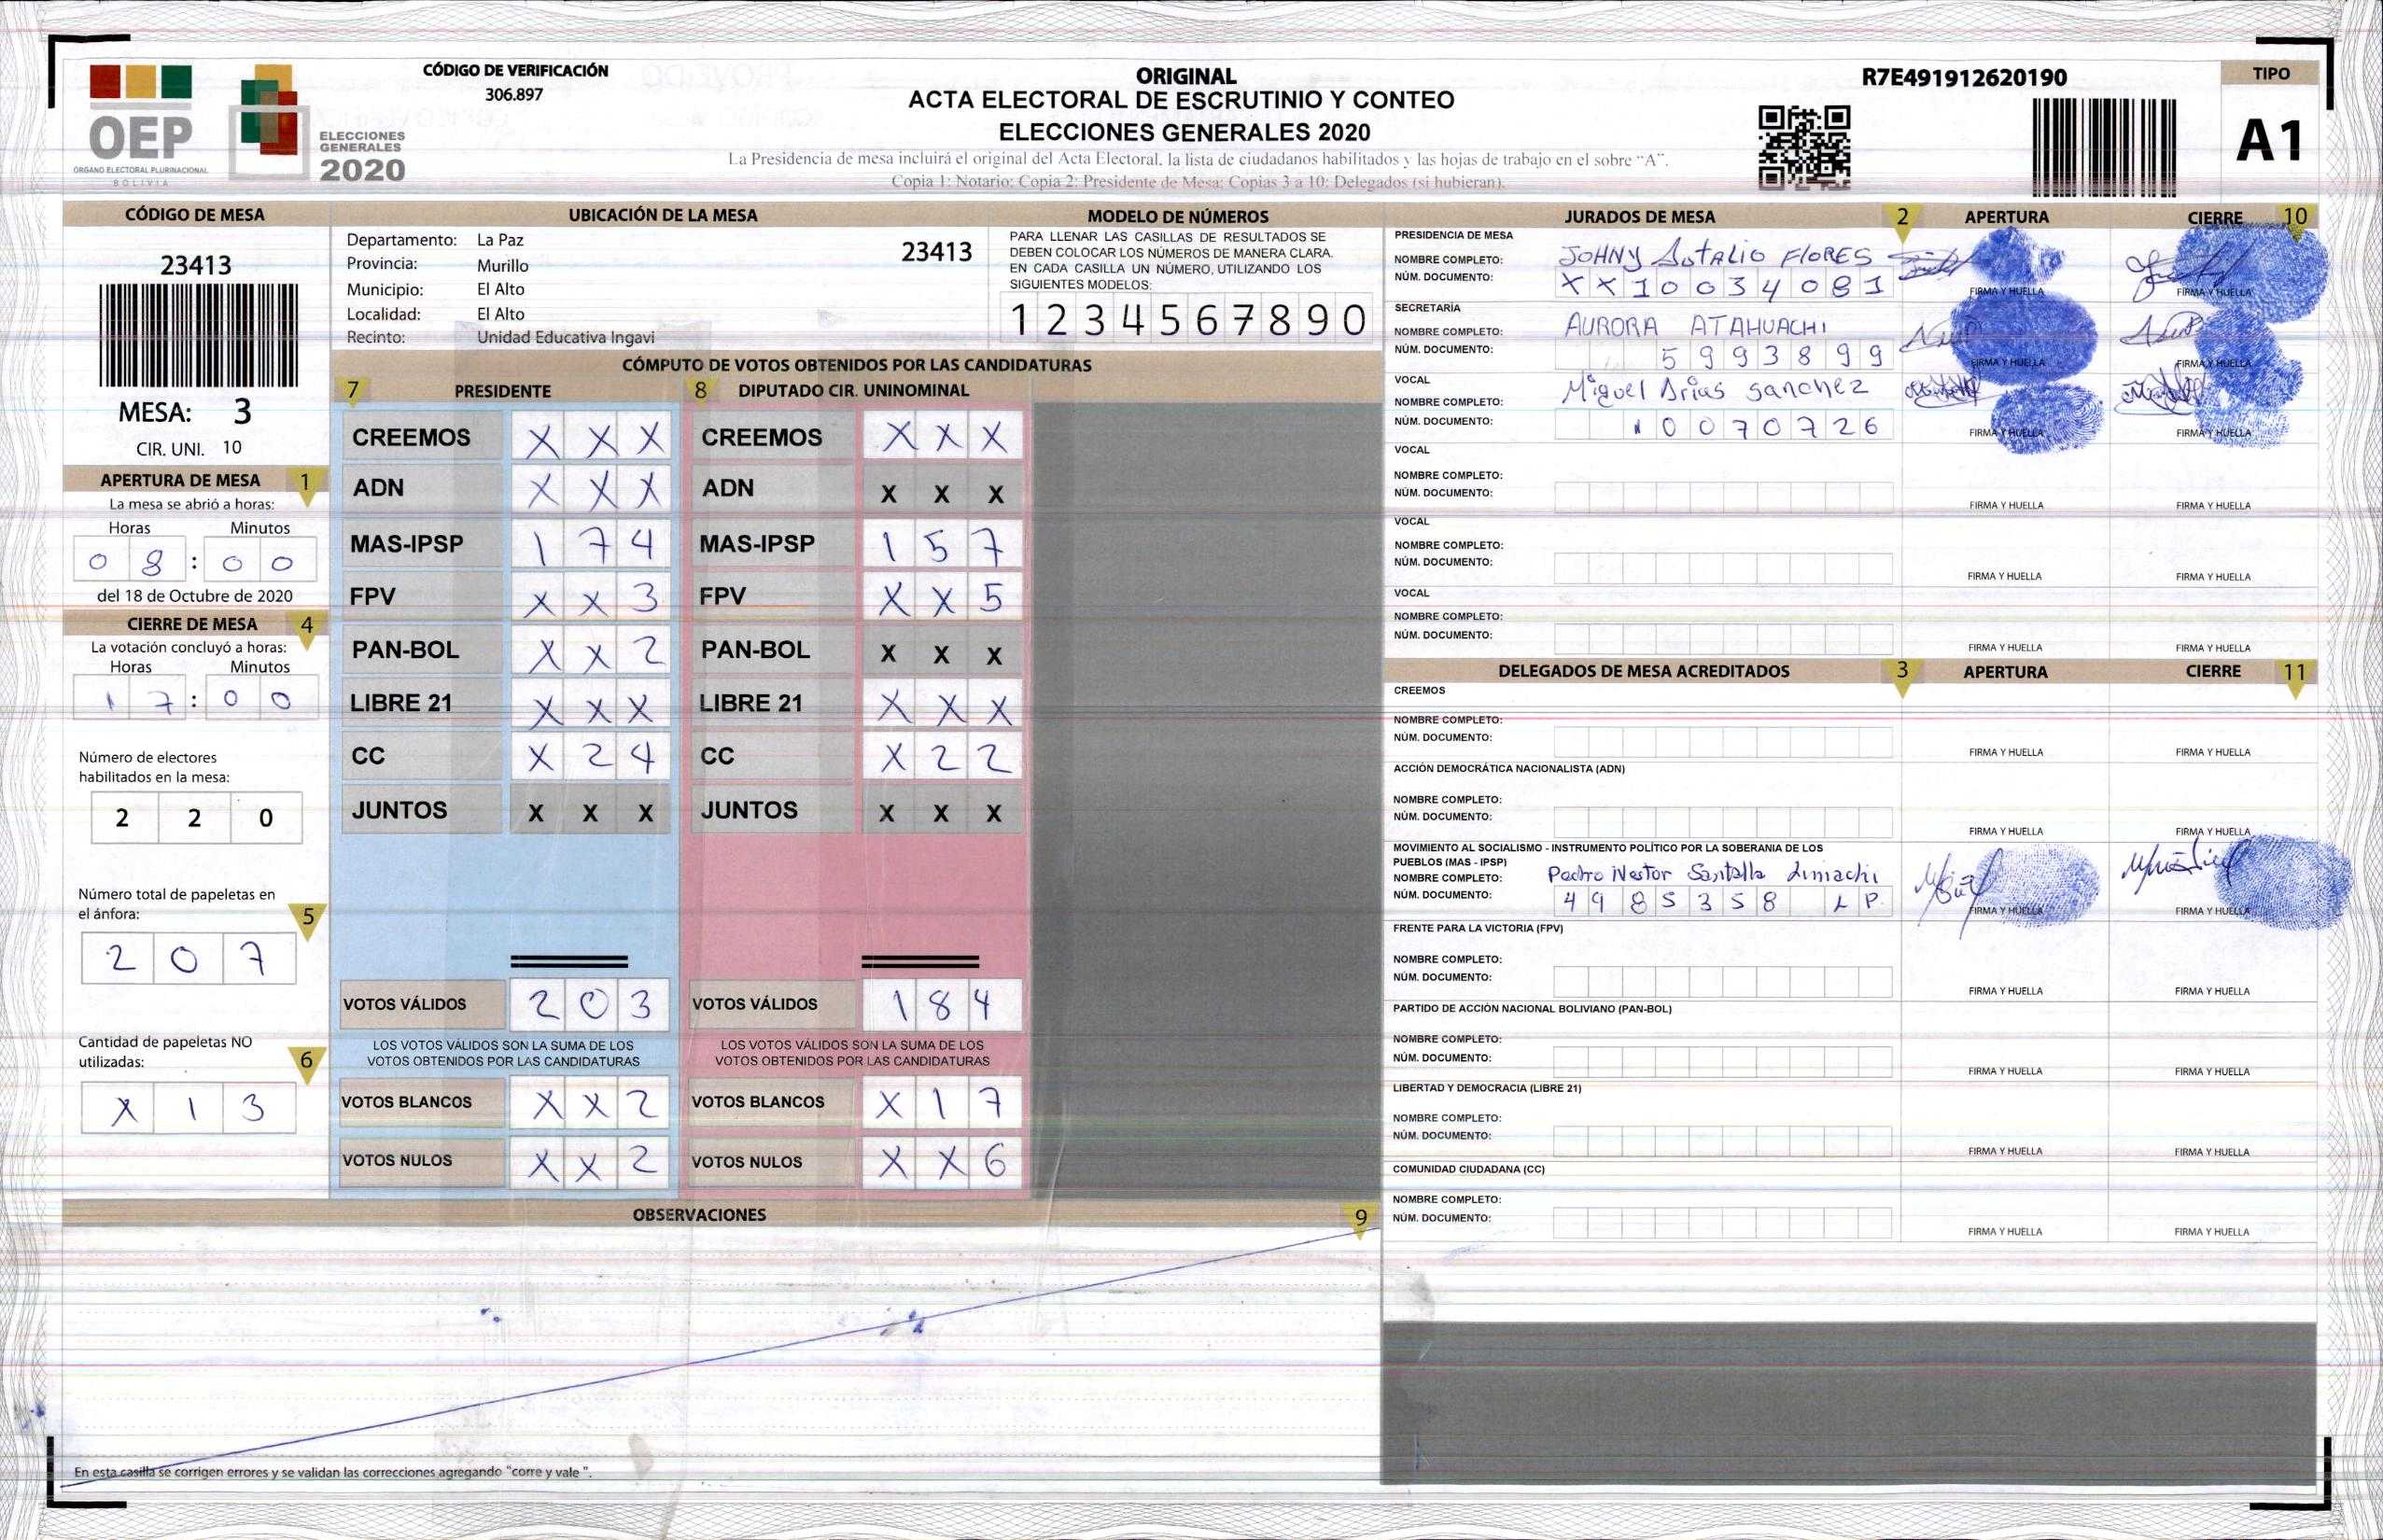 CÓDIGO DE VERIFICACIÓN
306.897
OEP
ÓRGANO ELECTORAL PLURINACIONAL
BOLIVIA
ELECCIONES
GENERALES
2020
ORIGINAL
ACTA ELECTORAL DE ESCRUTINIO Y CONTEO
ELECCIONES GENERALES 2020
La Presidencia de mesa incluirá el original del Acta Electoral, la lista de ciudadanos habilitados y las hojas de trabajo en el sobre "A".
Copia 1: Notario; Copia 2: Presidente de Mesa; Copias 3 a 10: Delegados (si hubieran).
R7E491912620190
TIPO
A1
CÓDIGO DE MESA
23413
MESA: 3
CIR. UNI. 10
APERTURA DE MESA 1
La mesa se abrió a horas:
Horas Minutos
0 8 : 0 0
del 18 de Octubre de 2020
CIERRE DE MESA 4
La votación concluyó a horas:
Horas Minutos
1 7 : 0 0
Número de electores
habilitados en la mesa:
2 2 0
Número total de papeletas en
el ánfora: 5
2 0 7
Cantidad de papeletas NO
utilizadas: 6
X 1 3
UBICACIÓN DE LA MESA
Departamento: La Paz 23413
Provincia: Murillo
Municipio: El Alto
Localidad: El Alto
Recinto: Unidad Educativa Ingavi
MODELO DE NÚMEROS
PARA LLENAR LAS CASILLAS DE RESULTADOS SE
DEBEN COLOCAR LOS NÚMEROS DE MANERA CLARA.
EN CADA CASILLA UN NÚMERO, UTILIZANDO LOS
SIGUIENTES MODELOS:
1 2 3 4 5 6 7 8 9 0
CÓMPUTO DE VOTOS OBTENIDOS POR LAS CANDIDATURAS
7 PRESIDENTE 8 DIPUTADO CIR. UNINOMINAL
CREEMOS X X X CREEMOS X X X
ADN X X X ADN X X X
MAS-IPSP 1 7 4 MAS-IPSP 1 5 7
FPV X X 3 FPV X X 5
PAN-BOL X X 2 PAN-BOL X X X
LIBRE 21 X X X LIBRE 21 X X X
CC X 2 4 CC X 2 2
JUNTOS X X X JUNTOS X X X
VOTOS VÁLIDOS 2 0 3 VOTOS VÁLIDOS 1 8 4
LOS VOTOS VÁLIDOS SON LA SUMA DE LOS LOS VOTOS VÁLIDOS SON LA SUMA DE LOS
VOTOS OBTENIDOS POR LAS CANDIDATURAS VOTOS OBTENIDOS POR LAS CANDIDATURAS
VOTOS BLANCOS X X 2 VOTOS BLANCOS X 1 7
VOTOS NULOS X X 2 VOTOS NULOS X X 6
OBSERVACIONES 9
En esta casilla se corrigen errores y se validan las correcciones agregando "corre y vale".
JURADOS DE MESA 2 APERTURA CIERRE 10
PRESIDENCIA DE MESA
NOMBRE COMPLETO: JOHNY Natalio FLORES
NÚM. DOCUMENTO: X X 1 0 0 3 4 0 8 1 FIRMA Y HUELLA FIRMA Y HUELLA
SECRETARÍA
NOMBRE COMPLETO: AURORA ATAHUACHI
NÚM. DOCUMENTO: 5 9 9 3 8 9 9 FIRMA Y HUELLA FIRMA Y HUELLA
VOCAL
NOMBRE COMPLETO: Miguel Arias Sanchez
NÚM. DOCUMENTO: 1 0 0 7 0 7 2 6 FIRMA Y HUELLA FIRMA Y HUELLA
VOCAL
NOMBRE COMPLETO:
NÚM. DOCUMENTO: FIRMA Y HUELLA FIRMA Y HUELLA
VOCAL
NOMBRE COMPLETO:
NÚM. DOCUMENTO: FIRMA Y HUELLA FIRMA Y HUELLA
VOCAL
NOMBRE COMPLETO:
NÚM. DOCUMENTO: FIRMA Y HUELLA FIRMA Y HUELLA
DELEGADOS DE MESA ACREDITADOS 3 APERTURA CIERRE 11
CREEMOS
NOMBRE COMPLETO:
NÚM. DOCUMENTO: FIRMA Y HUELLA FIRMA Y HUELLA
ACCIÓN DEMOCRÁTICA NACIONALISTA (ADN)
NOMBRE COMPLETO:
NÚM. DOCUMENTO: FIRMA Y HUELLA FIRMA Y HUELLA
MOVIMIENTO AL SOCIALISMO - INSTRUMENTO POLÍTICO POR LA SOBERANIA DE LOS
PUEBLOS (MAS - IPSP)
NOMBRE COMPLETO: Pedro Nestor Santalla Limachi
NÚM. DOCUMENTO: 4 9 8 5 3 5 8 L P. FIRMA Y HUELLA FIRMA Y HUELLA
FRENTE PARA LA VICTORIA (FPV)
NOMBRE COMPLETO:
NÚM. DOCUMENTO: FIRMA Y HUELLA FIRMA Y HUELLA
PARTIDO DE ACCIÓN NACIONAL BOLIVIANO (PAN-BOL)
NOMBRE COMPLETO:
NÚM. DOCUMENTO: FIRMA Y HUELLA FIRMA Y HUELLA
LIBERTAD Y DEMOCRACIA (LIBRE 21)
NOMBRE COMPLETO:
NÚM. DOCUMENTO: FIRMA Y HUELLA FIRMA Y HUELLA
COMUNIDAD CIUDADANA (CC)
NOMBRE COMPLETO:
NÚM. DOCUMENTO: FIRMA Y HUELLA FIRMA Y HUELLA